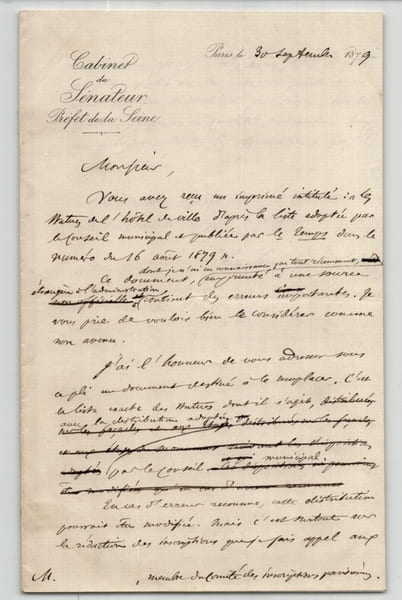 Cabinet
du
Sénateur
Préfet de la Seine
Paris, le 30 septembre 1879
Monsieur,
Vous avez reçu un imprimé intitulé : « Les
statues de l'hôtel de ville d'après la liste adoptée par
le Conseil municipal et publiée par le Temps dans le
numéro du 16 août 1879 ».
dont j'ai eu connaissance par tout récemment,
Ce document, emprunté à une source
étrangère à l'administration,
non officielle contient des erreurs importantes. Je
vous prie de vouloir bien le considérer comme
non avenu.
J'ai l'honneur de vous adresser sous
ce pli un document destiné à le remplacer. C'est
la liste exacte des statues dont il s'agit, distribuées
avec la distribution adoptée
sur les façades
par le Conseil municipal.
En cas d'erreur reconnue, cette distribution
pourrait être modifiée. Mais c'est surtout sur
la rédaction des inscriptions que je fais appel aux
M. , membre du Comité des Inscriptions parisiennes.